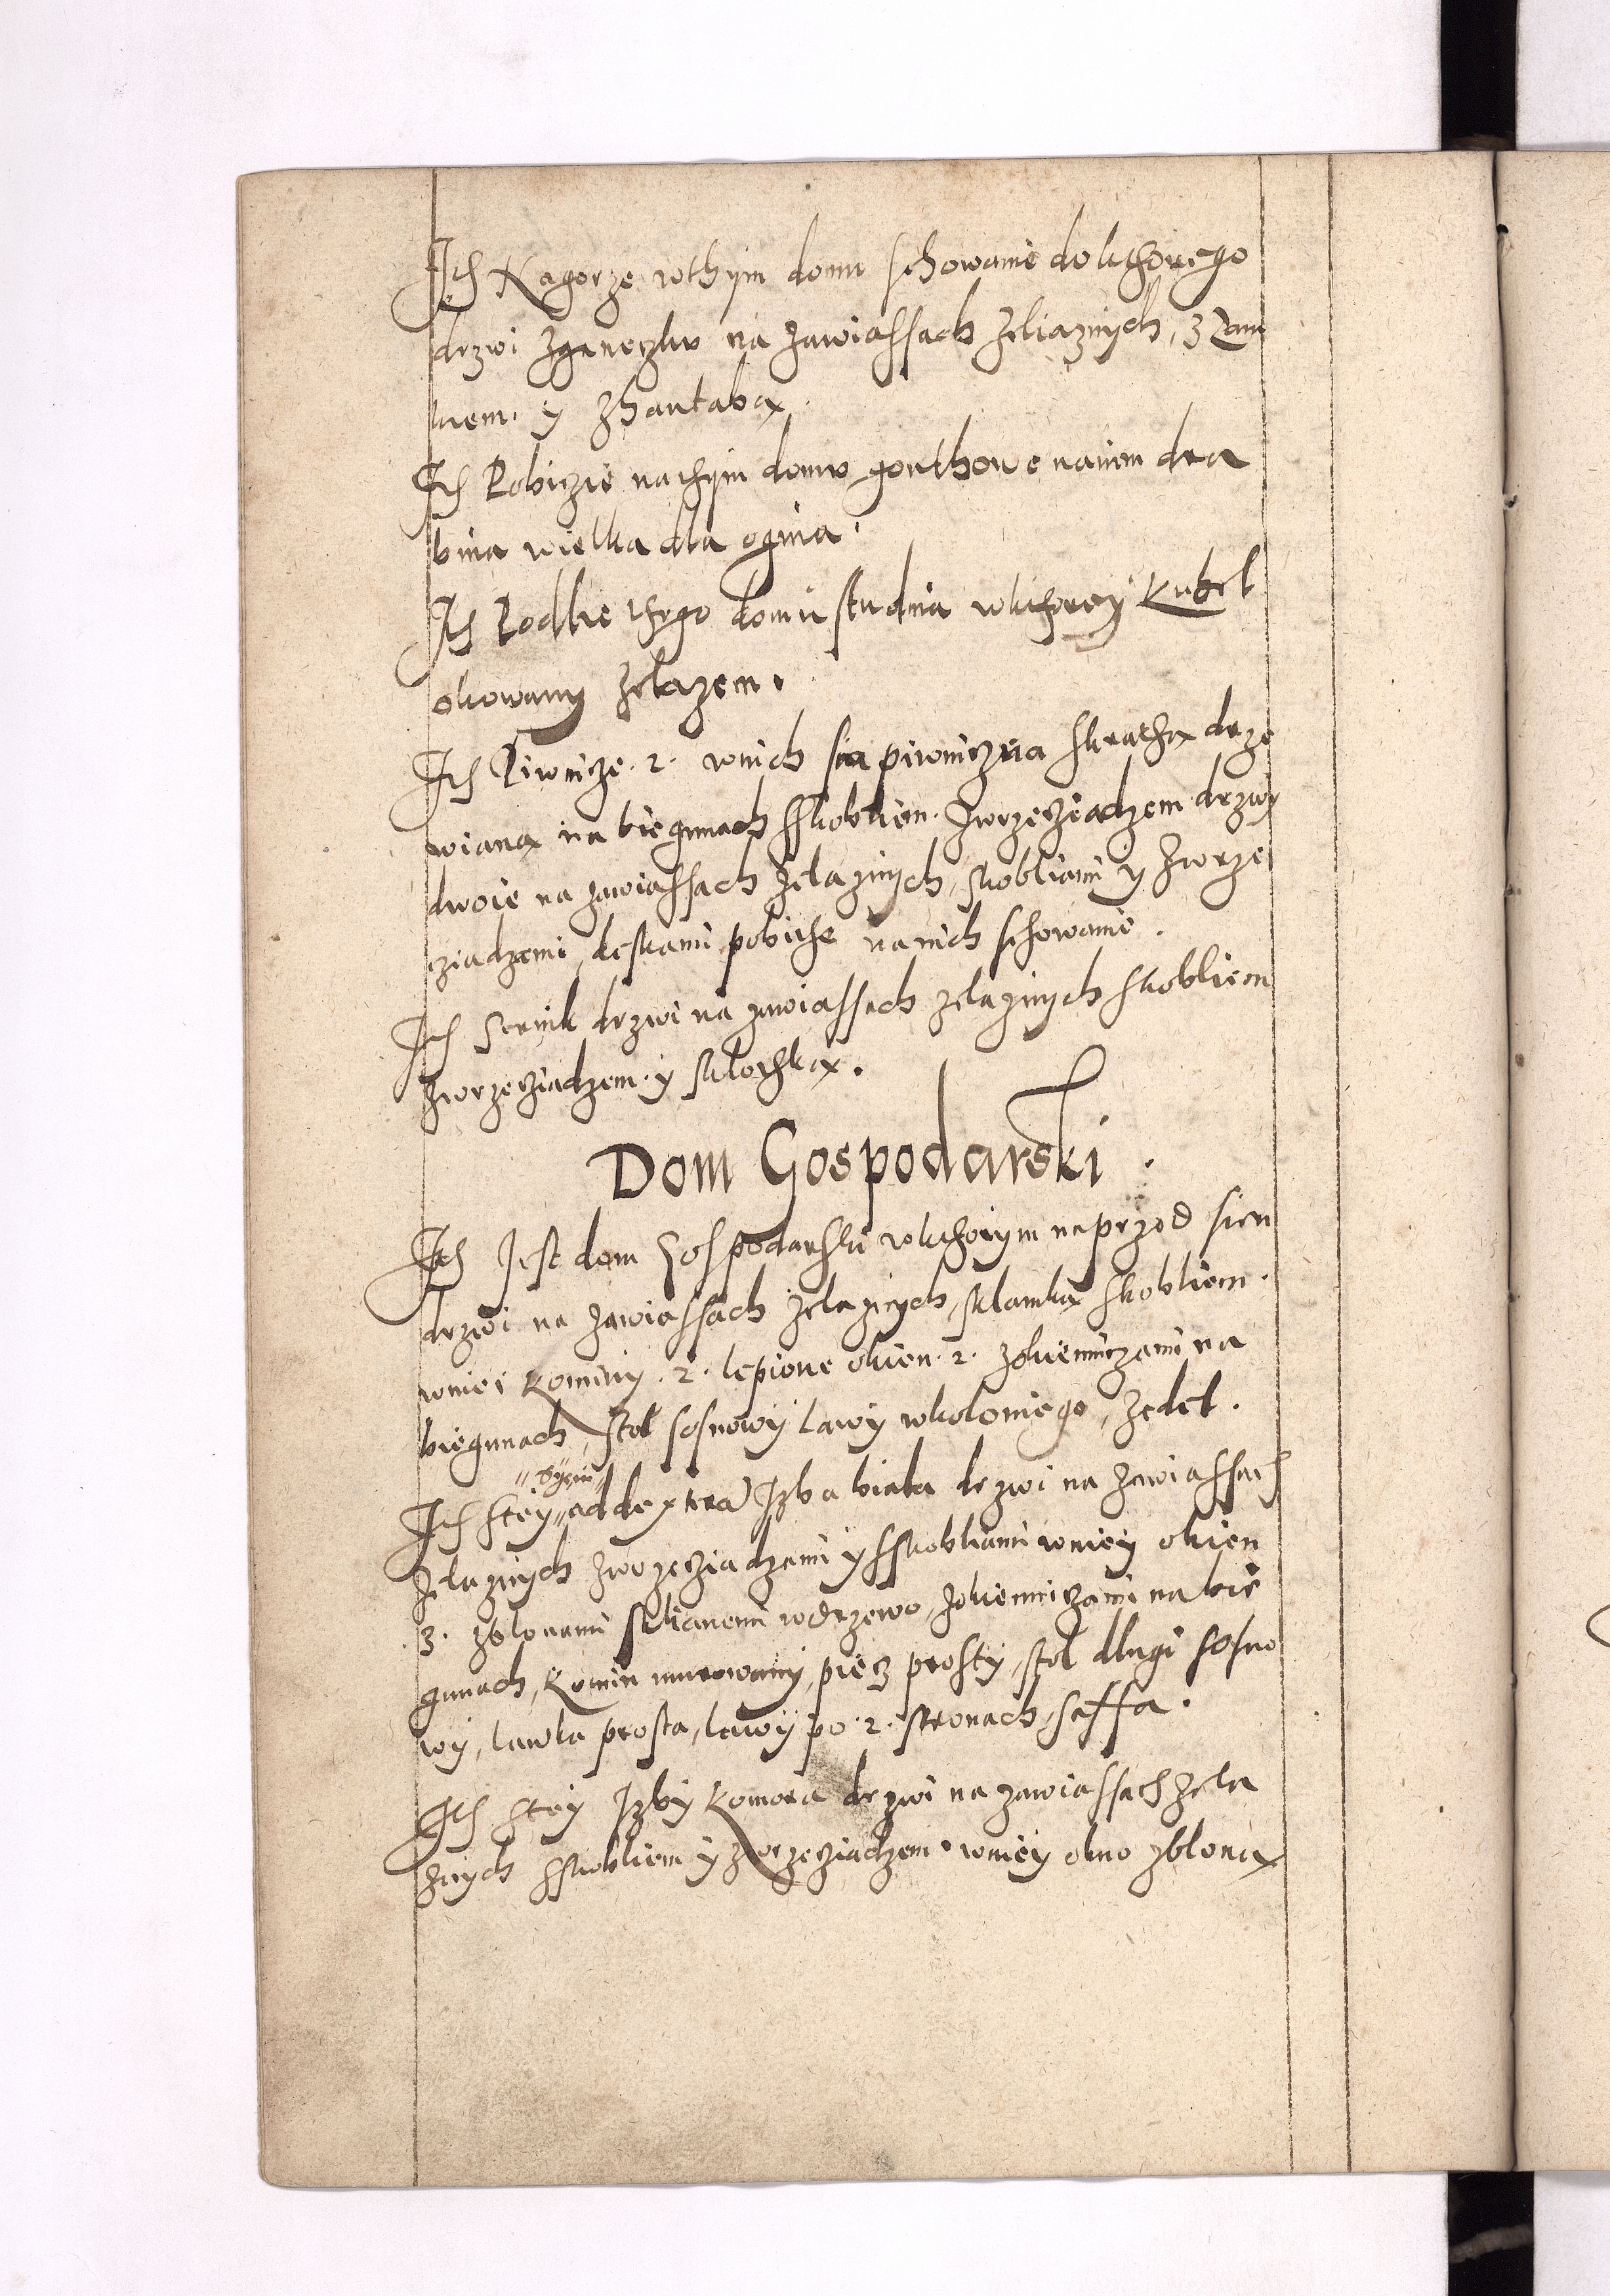 Ith Nagorze wthym domu schowanie do kthorego
drzwi zganeczku na zawiassach zeliaznych, z zam
kiem y zhantabą.
Ith Pobiczie nathym domu gonthowe naniem dra
bina wielka dla ognia.
Ith Podlie thego domu studnia wkthorey kubel
okowany zelazem.
Ith Piwnicze. 2. wnich sia piwniczna skrathą drze
wianą na biegunach sskobliem. zwrzecziadzem drzwy
dwoie na zawiassach zelaznych, skobliami y zwrze
cziadzemi, deskami pobithe na nich schowanie.
Ith Sernik drzwi na zawiassach zelaznych skobliem
zwrzecziadzem y sklothką.
Dom Gospodarski.
Ith Jest dom Gospodarski wkthorym naprzod sien
drzwi na zawiassach zelaznych, sklamką skobliem.
wniei kominy. 2. lepione okien. 2. zokienniczami na
biegunach, stol sosnowy lawy wkolo niego, zedel.
Ith stey sieni ad dextera Izba biala drzwi na zawiassach
zelaznych zwrzecziadzemi y sskobliami wniey okien
3. zblonami sklianemi wdrzewo, zokienniczami na bie
gunach, komin murowany, piecz prosty, stol dlugi sosno
wy, lawka prosta, lawy po. 2. stronach, saffa.
Ith stey Izby komora drzwi na zawiassach zela
znych sskobliem y zwrzecziadzem. wniey okno zbloną